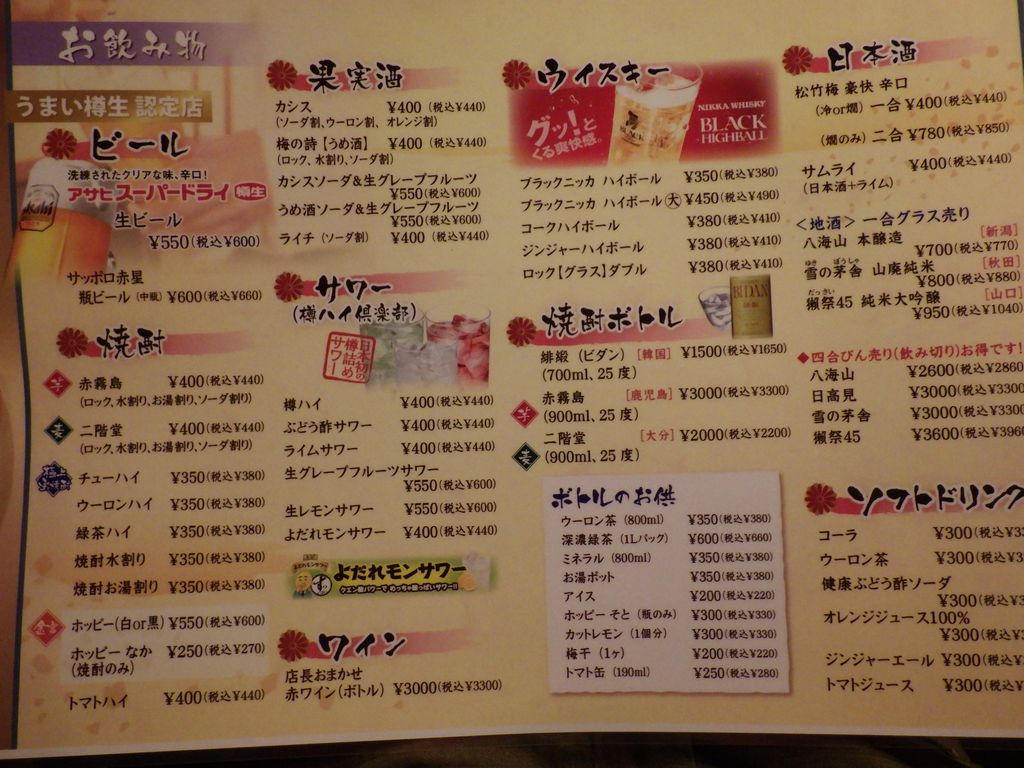 お飲み物
うまい樽生 認定店
ビール
洗練されたクリアな味、辛口!
アサヒスーパードライ 樽生
Asahi
生ビール
¥550(税込¥600)
サッポロ赤星
瓶ビール(中瓶) ¥600(税込¥660)
焼酎
芋 赤霧島 ¥400(税込¥440)
(ロック、水割り、お湯割り、ソーダ割り)
麦 二階堂 ¥400(税込¥440)
(ロック、水割り、お湯割り、ソーダ割り)
チューハイ ¥350(税込¥380)
ウーロンハイ ¥350(税込¥380)
緑茶ハイ ¥350(税込¥380)
焼酎水割り ¥350(税込¥380)
焼酎お湯割り ¥350(税込¥380)
ホッピー(白or黒) ¥550(税込¥600)
ホッピー なか ¥250(税込¥270)
(焼酎のみ)
トマトハイ ¥400(税込¥440)
果実酒
カシス ¥400(税込¥440)
(ソーダ割、ウーロン割、オレンジ割)
梅の詩【うめ酒】 ¥400(税込¥440)
(ロック、水割り、ソーダ割)
カシスソーダ&生グレープフルーツ
¥550(税込¥600)
うめ酒ソーダ&生グレープフルーツ
¥550(税込¥600)
ライチ(ソーダ割) ¥400(税込¥440)
サワー
(樽ハイ倶楽部)
日本初の
樽詰め
サワー
樽ハイ ¥400(税込¥440)
ぶどう酢サワー ¥400(税込¥440)
ライムサワー ¥400(税込¥440)
生グレープフルーツサワー
¥550(税込¥600)
生レモンサワー ¥550(税込¥600)
よだれモンサワー ¥400(税込¥440)
よだれモンサワー
ワイン
店長おまかせ
赤ワイン(ボトル) ¥3000(税込¥3300)
ウイスキー
グッ!と
くる爽快感。
NIKKA WHISKY
BLACK
HIGHBALL
ブラックニッカ ハイボール ¥350(税込¥380)
ブラックニッカ ハイボール 大 ¥450(税込¥490)
コークハイボール ¥380(税込¥410)
ジンジャーハイボール ¥380(税込¥410)
ロック【グラス】ダブル ¥380(税込¥410)
焼酎ボトル
BIDAN
緋緞(ビダン)[韓国] ¥1500(税込¥1650)
(700ml、25度)
芋 赤霧島 [鹿児島] ¥3000(税込¥3300)
(900ml、25度)
麦 二階堂 [大分] ¥2000(税込¥2200)
(900ml、25度)
ボトルのお供
ウーロン茶(800ml) ¥350(税込¥380)
深濃緑茶(1Lパック) ¥600(税込¥660)
ミネラル(800ml) ¥350(税込¥380)
お湯ポット ¥350(税込¥380)
アイス ¥200(税込¥220)
ホッピー そと(瓶のみ) ¥300(税込¥330)
カットレモン(1個分) ¥300(税込¥330)
梅干(1ヶ) ¥200(税込¥220)
トマト缶(190ml) ¥250(税込¥280)
日本酒
松竹梅 豪快 辛口
(冷or燗) 一合 ¥400(税込¥440)
(燗のみ) 二合 ¥780(税込¥850)
サムライ ¥400(税込¥440)
(日本酒+ライム)
<地酒>一合グラス売り
八海山 本醸造 [新潟]
¥700(税込¥770)
雪の茅舎 山廃純米 [秋田]
¥800(税込¥880)
獺祭45 純米大吟醸 [山口]
¥950(税込¥1040)
◆四合びん売り(飲み切り)お得です!
八海山 ¥2600(税込¥2860
日高見 ¥3000(税込¥3300
雪の茅舎 ¥3000(税込¥3300
獺祭45 ¥3600(税込¥3960
ソフトドリンク
コーラ ¥300(税込¥3
ウーロン茶 ¥300(税込¥3
健康ぶどう酢ソーダ
¥300(税込¥3
オレンジジュース100%
¥300(税込¥3
ジンジャーエール ¥300(税込¥
トマトジュース ¥300(税込¥